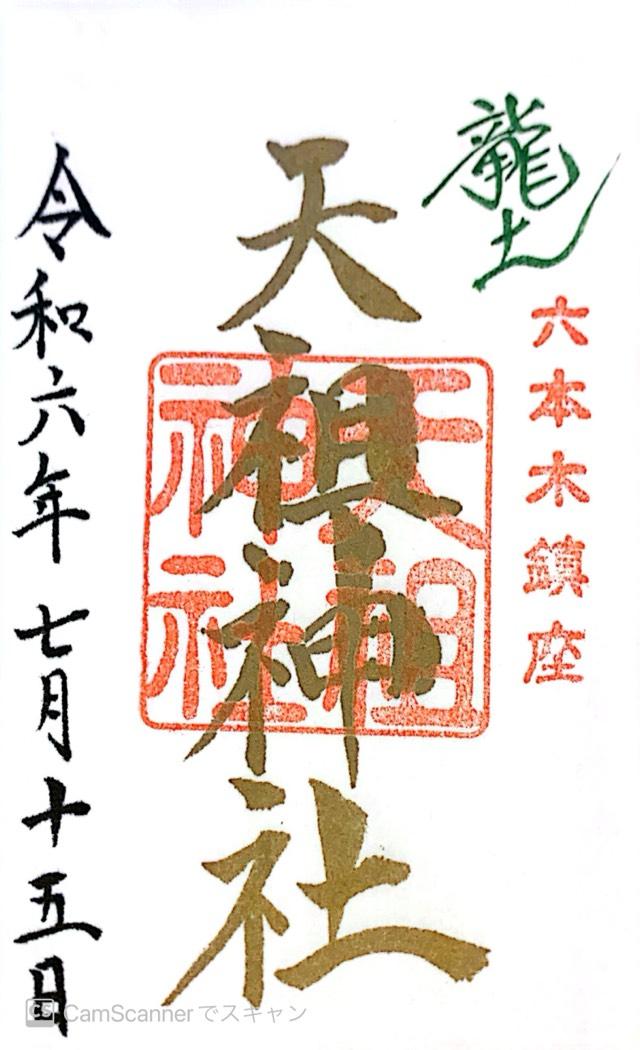 龍土
六本木鎮座
天祖神社
天祖神社
令和六年七月十五日
CS CamScannerでスキャン